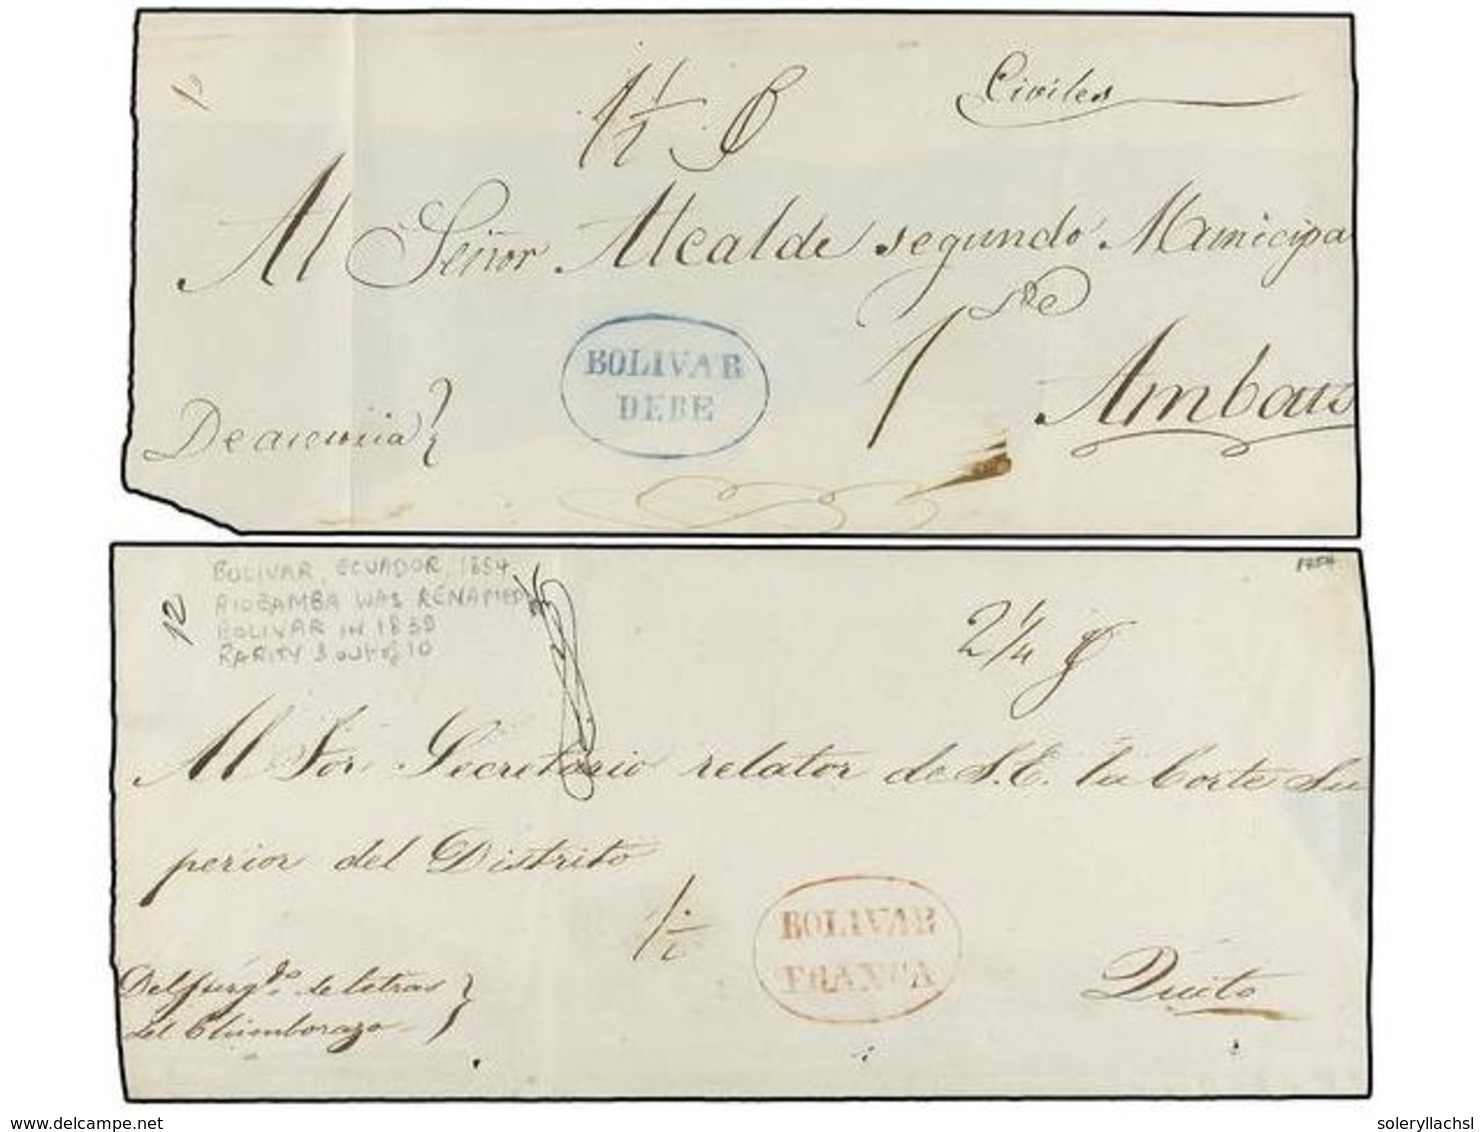 1½
Civiles
Al Señor Alcalde segundo Municipa
de
BOLIVAR
DEBE
1
Ambato
De
BOLIVAR, ECUADOR, 1854
RIOBAMBA WAS RENAMED
BOLIVAR IN 1839
RARITY 3 out of 10
1854
12
2 1/4
Al Sor. Secretario relator de S.E. la Corte Su
perior del Distrito
1½
BOLIVAR
FRANCA
Quito
de letras
del Chimborazo
delcampe.net
soleryllachsl